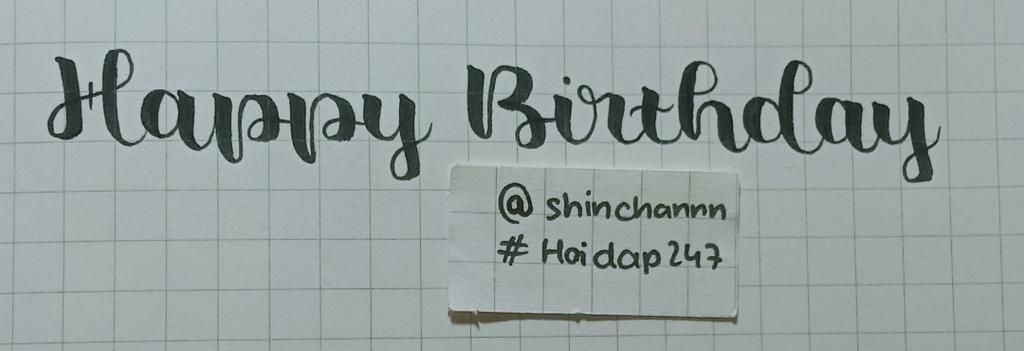 Happy Birthday
@ shinchannn
# Hoidap247